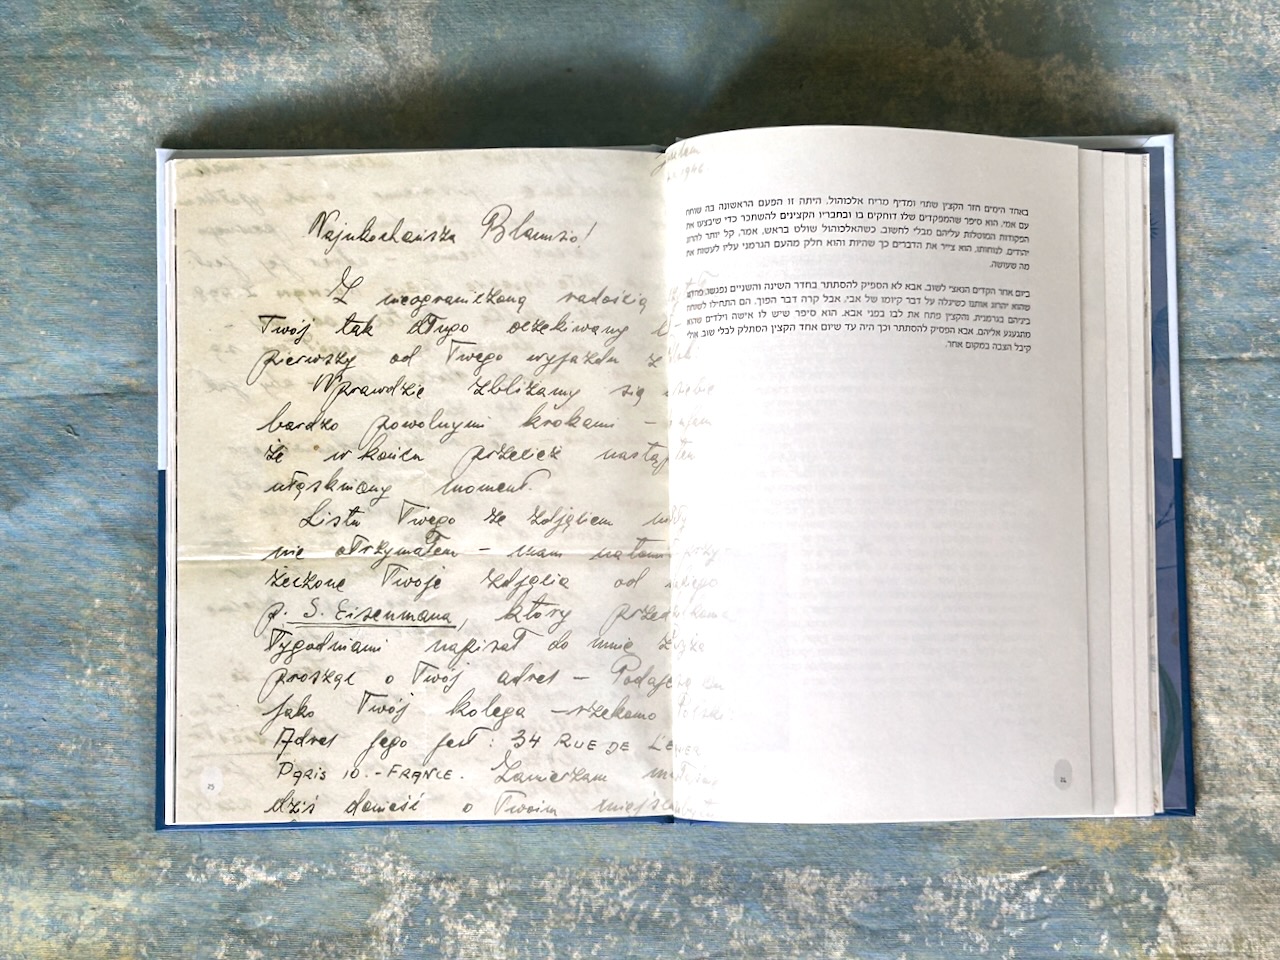 באחד הימים חזר הקצין שתוי ומדיף מריח אלכוהול. היתה זו הפעם הראשונה בה שוחח
עם אמי. הוא סיפר שהמפקדים שלו דוחקים בו ובחבריו הקצינים להשתכר כדי שיבצעו את
הפקודות המוטלות עליהם מבלי לחשוב. כשהאלכוהול שולט בראש, אמר, קל יותר להרוג
יהודים. לנוחותו, הוא צייר את הדברים כך שהיות והוא חלק מהעם הגרמני עליו לעשות את
מה שעושה.
ביום אחר הקדים הנאצי לשוב. אבא לא הספיק להסתתר בחדר השינה והשניים נפגשו.
שהוא יהרוג אותנו כשיגלה על דבר קיומו של אבי, אבל קרה דבר הפוך. הם התחילו לשוחח
ביניהם בגרמנית, והקצין פתח את לבו בפני אבא. הוא סיפר שיש לו אישה וילדים שהוא
מתגעגע אליהם. אבא הפסיק להסתתר וכך היה עד שיום אחד הקצין הסתלק לבלי שוב. אולי
קיבל הצבה במקום אחר.
1946
Najukochańsza Blumsio!
Z nieograniczoną radością
Twój tak długo oczekiwany
pierwszy od Twego wyjazdu z
Wprawdzie zbliżamy się
bardzo powolnymi krokami –
że w końcu przecież nastąpi ten
utęskniony moment.
Listu Twego ze zdjęciem
nie otrzymałem – mam natomiast
Twoje zdjęcia od
p. S. Eisenmana, który przed
tygodniami napisał do mnie
prosząc o Twój adres –
jako Twój kolega – rzekomo
Adres jego jest: 34 RUE DE
PARIS 10. - FRANCE. Zamierzam
dziś donieść o Twoim
25